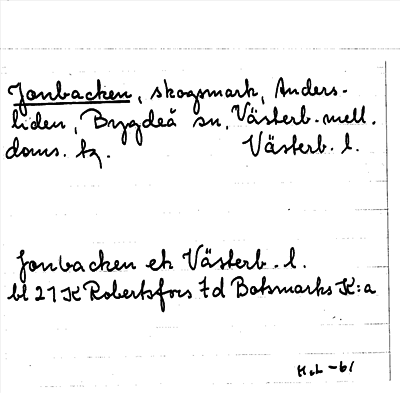 Jonbacken, skogsmark, Anders-
liden, Bygdeå sn, Västerb. mell.
doms. tg. Västerb. l.
Jonbacken ek Västerb. l.
bl 21 K Robertsfors 7d Botsmarks K:a